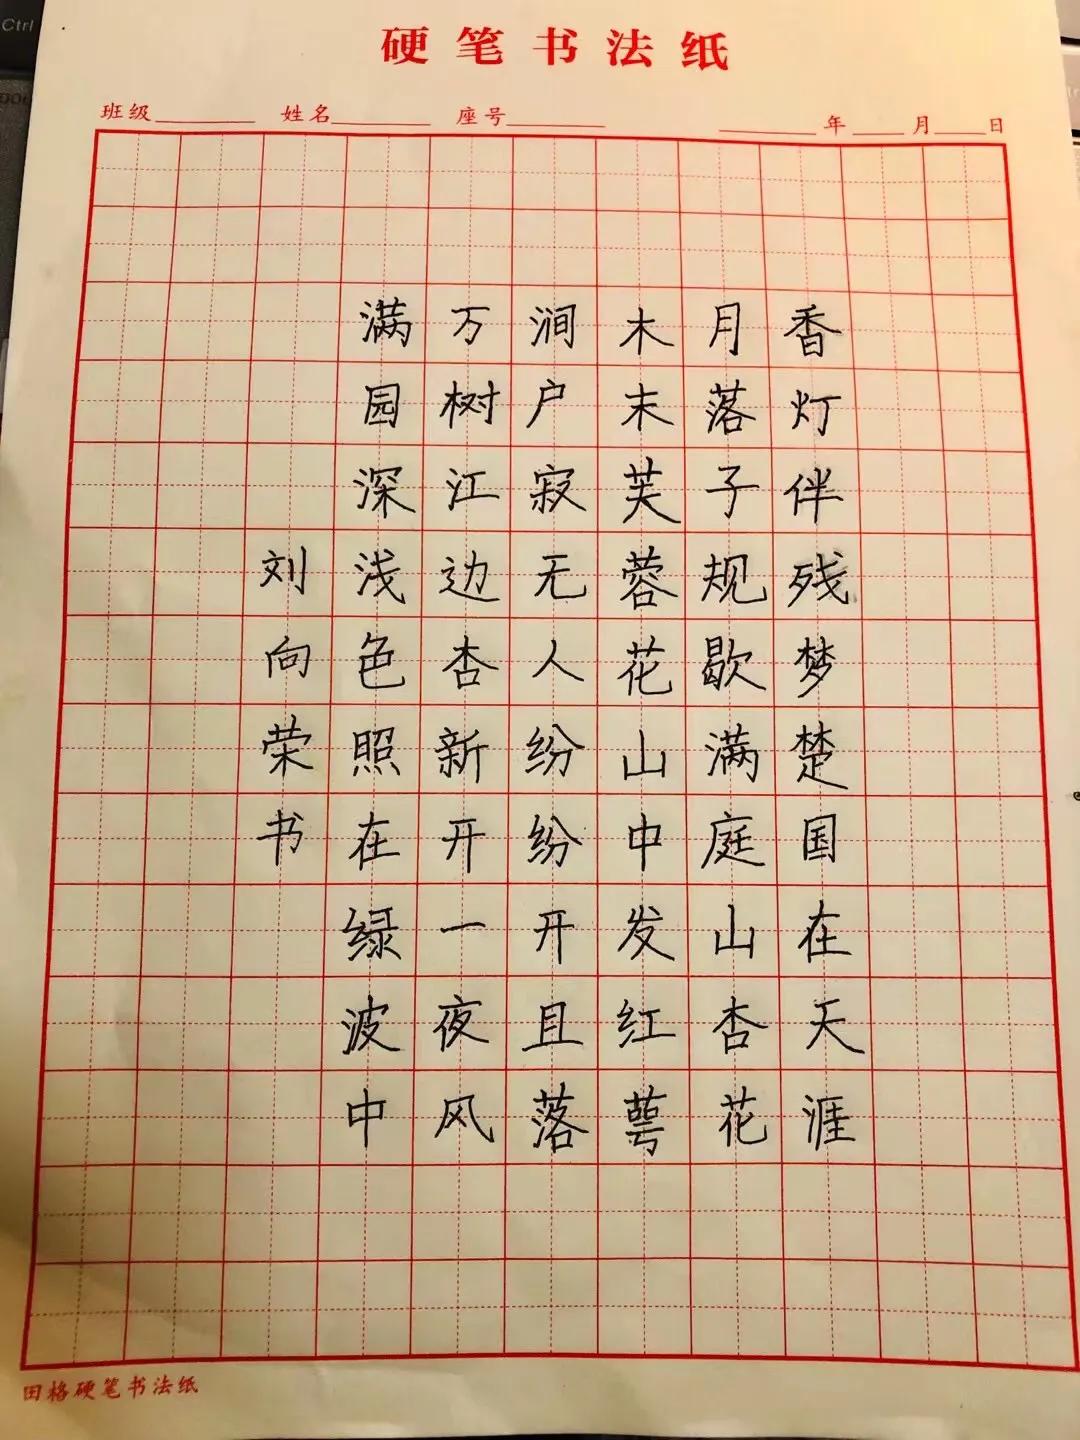 硬笔书法纸
班级 姓名 座号 年 月 日
香灯伴残梦楚国在天涯
月落子规歇满庭山杏花
木末芙蓉花山中发红萼
涧户寂无人纷纷开且落
万树江边杏新开一夜风
满园深浅色照在绿波中
刘向荣书
田格硬笔书法纸